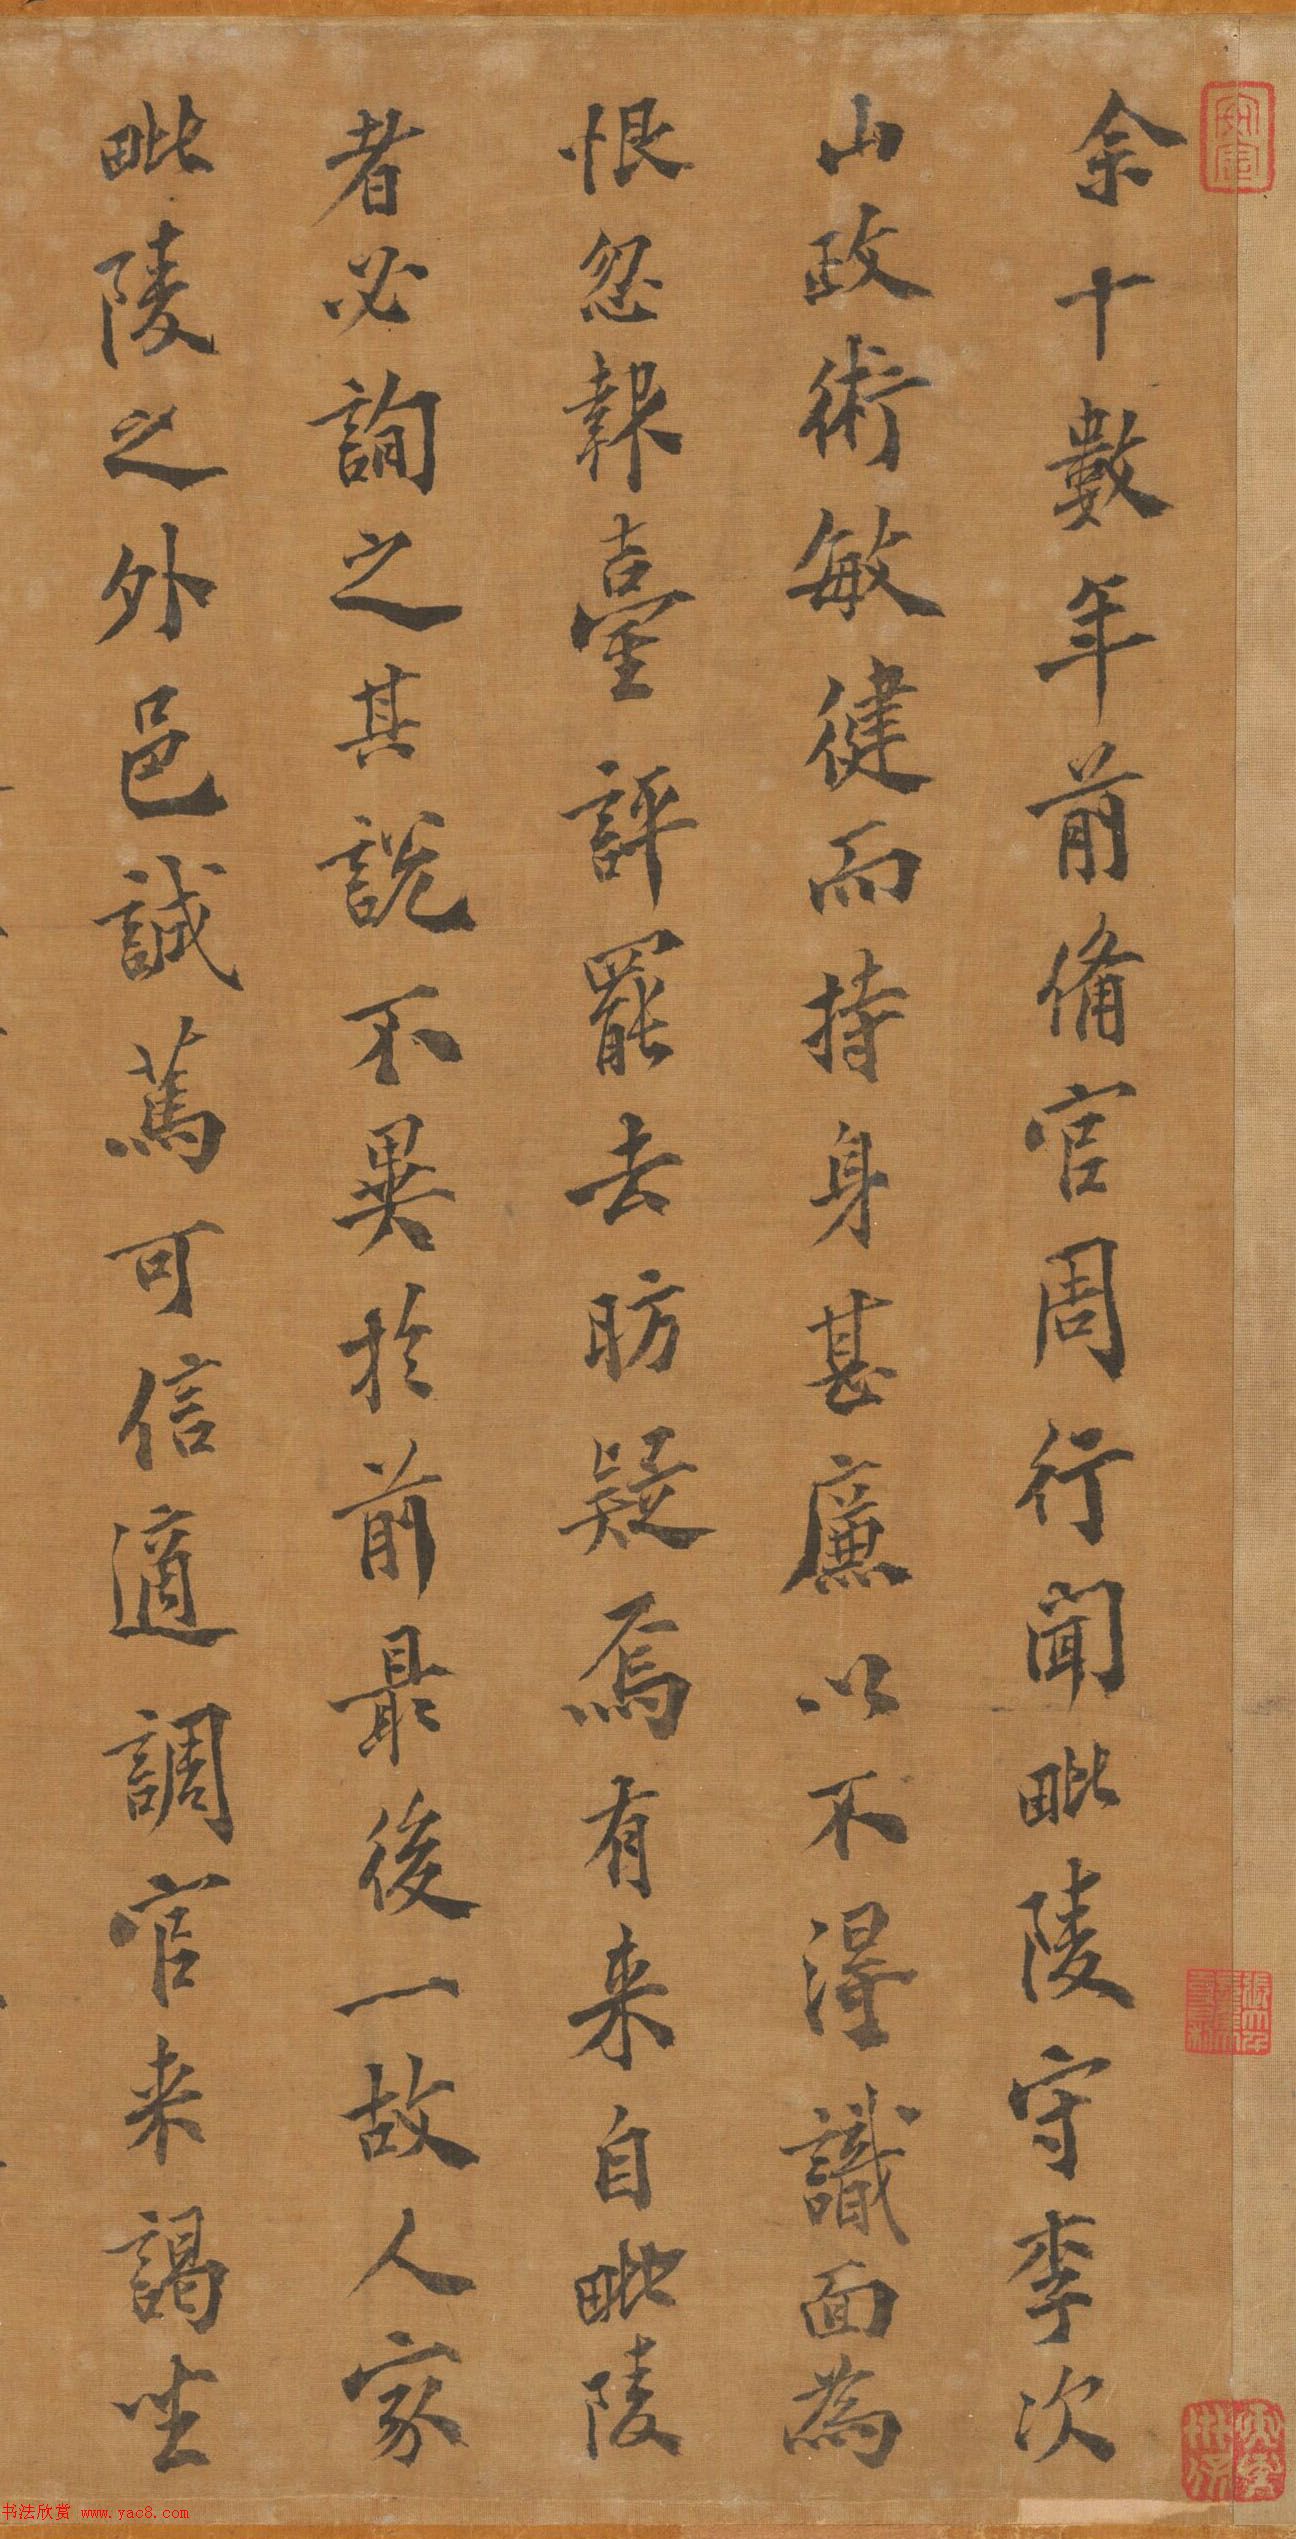 余十數年前備官周行聞毗陵守李次
山政術敏健而持身甚廉以不得識面為
恨忽報臺評罷去昉疑焉有来自毗陵
者必詢之其説不異於前最後一故人家
毗陵之外邑誠篤可信適調官来謁坐
书法欣赏 www.yac8.com